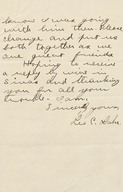 know I was going
with him then Please
change and put us
both together as we
are great friends
Hoping to receive
a reply by wire in
5 mins and thanking
you for all your
trouble. I am.
Sincerely yours,
Geo. C.